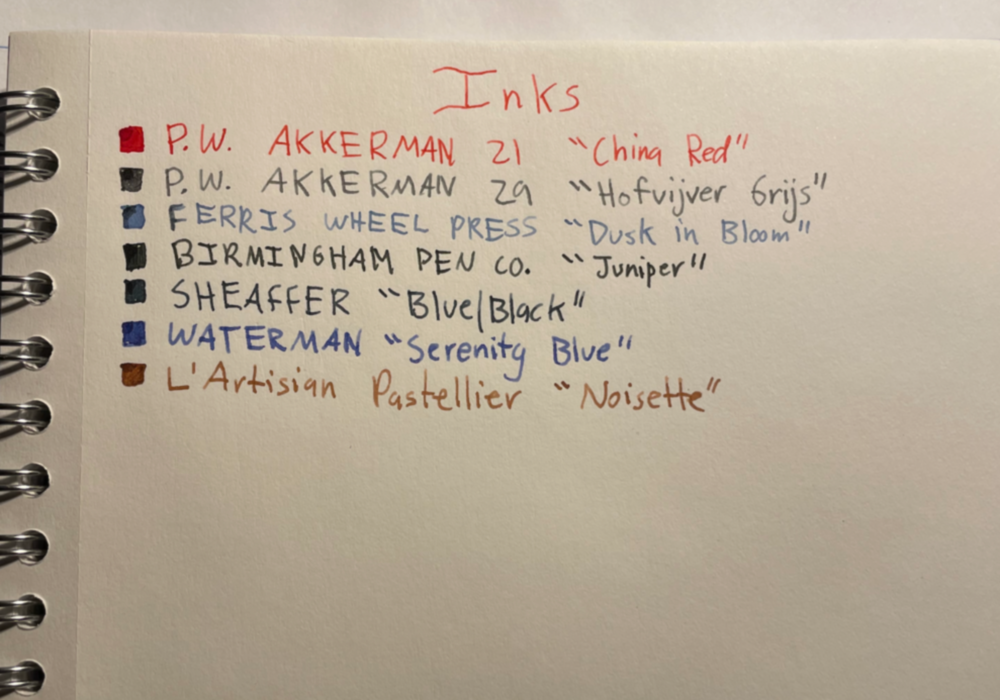 Inks
P.W. AKKERMAN 21 "China Red"
P.W. AKKERMAN 29 "Hofvijver Grijs"
FERRIS WHEEL PRESS "Dusk in Bloom"
BIRMINGHAM PEN CO. "Juniper"
SHEAFFER "Blue/Black"
WATERMAN "Serenity Blue"
L'Artisian Pastellier "Noisette"